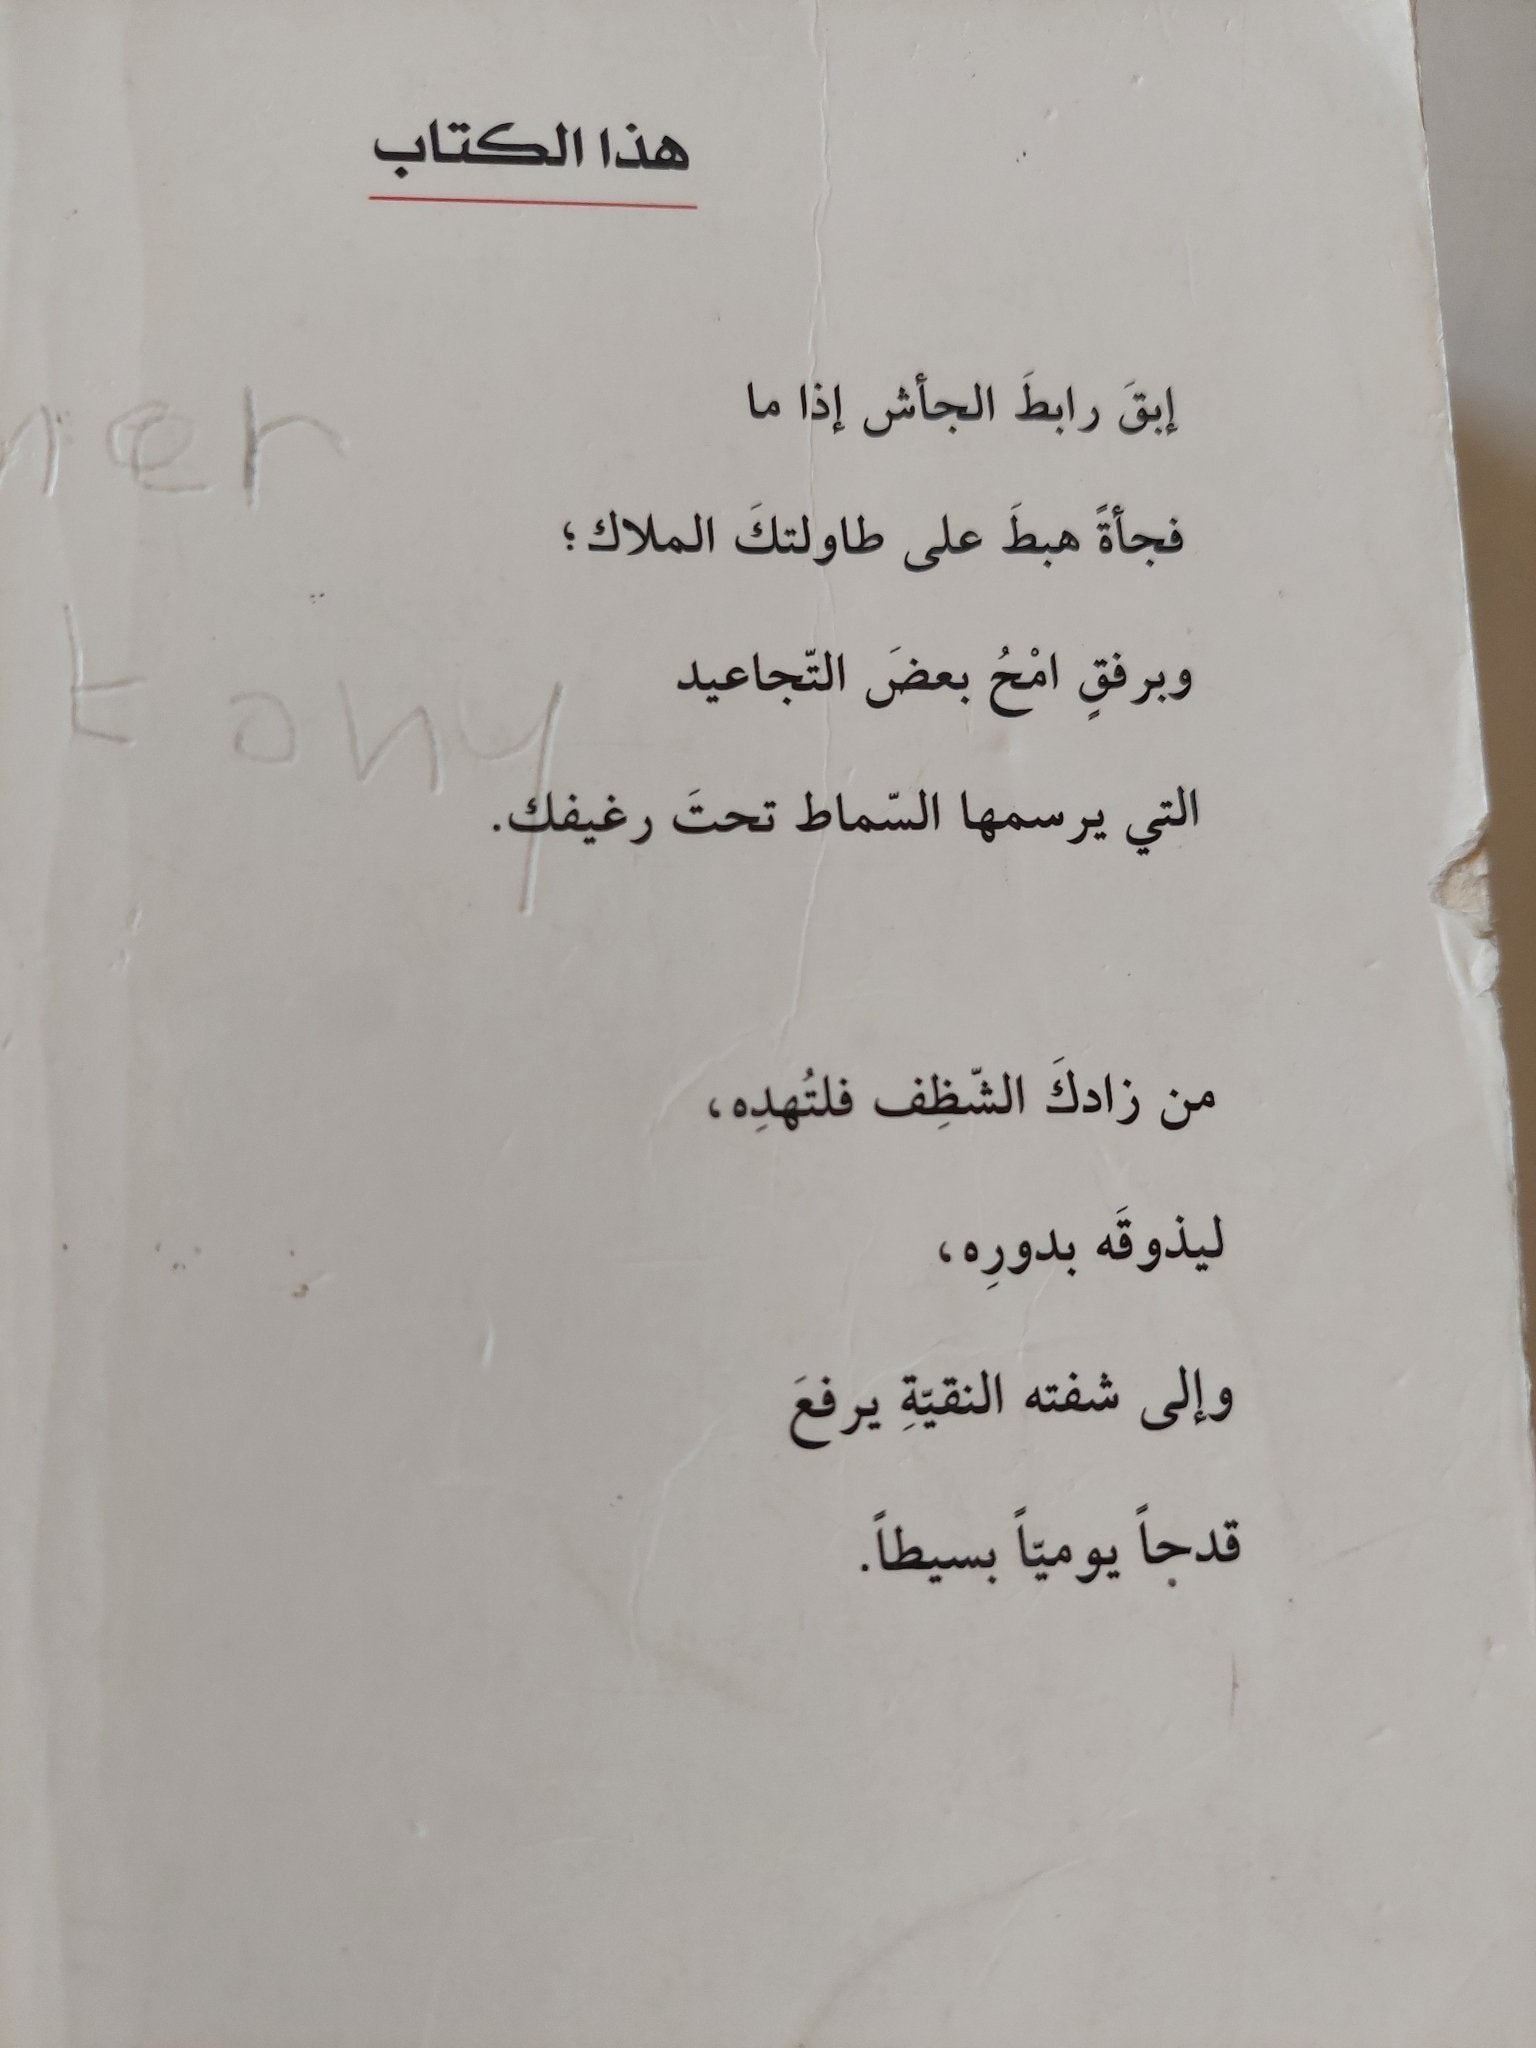 هذا الكتاب
إبقَ رابطَ الجأش إذا ما
فجأةً هبطَ على طاولتكَ الملاك؛
وبرفقٍ امْحُ بعضَ التّجاعيد
التي يرسمها السّماط تحتَ رغيفك.
من زادكَ الشّظِف فلتُهدِه،
ليذوقَه بدورِه،
وإلى شفته النقيّةِ يرفعَ
قدحاً يوميّاً بسيطاً.
ner
tony